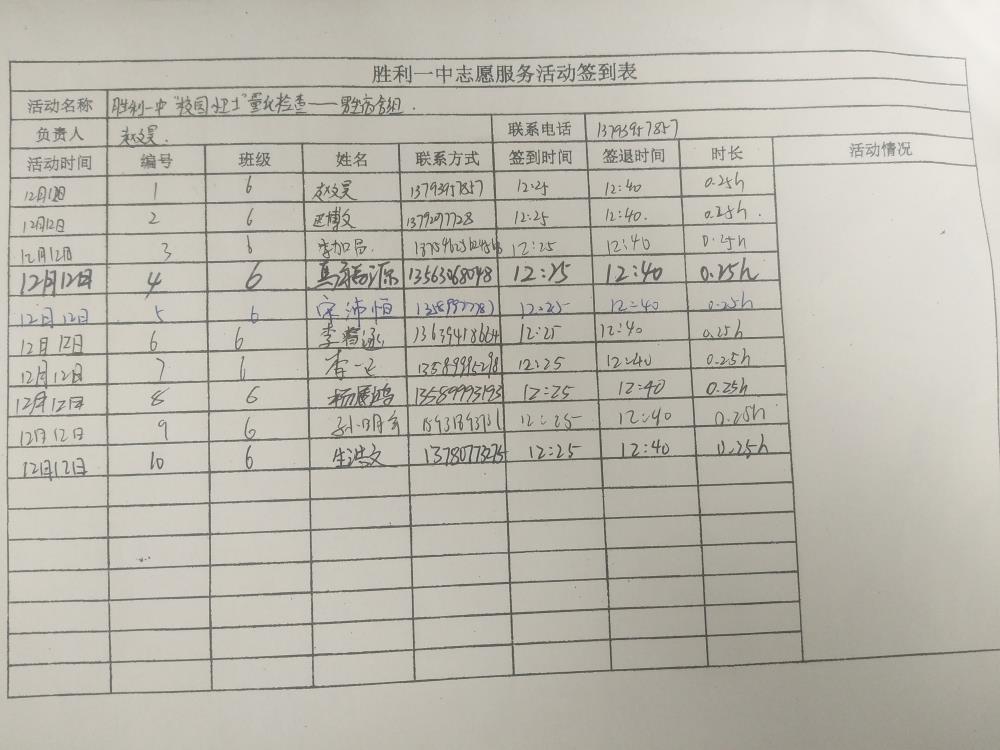 胜利一中志愿服务活动签到表
活动名称 胜利一中"校园卫士"量化检查——男生宿舍组.
负责人 赵文昊. 联系电话 13793957857
活动时间 编号 班级 姓名 联系方式 签到时间 签退时间 时长 活动情况
12月12日 1 6 赵文昊 13793957857 12:25 12:40 0.25h
12月12日 2 6 博文 12:25 12:40. 0.25h.
12月12日 3 6 李加昌. 12:25 12:40 0.25h
12月12日 4 6 13563068048 12:25 12:40 0.25h
12月12日 5 6 宋沛恒 12:25 12:40 0.25h
12月12日 6 6 李 13639418664 12:25 12:40 0.25h
12月12日 7 6 李一 13589995298 12:25 12:40 0.25h
12月12日 8 6 杨展鸿 13589993193 12:25 12:40 0.25h
12月12日 9 6 12:25 12:40 0.25h
12月12日 10 6 生浩文 13780773275 12:25 12:40 0.25h